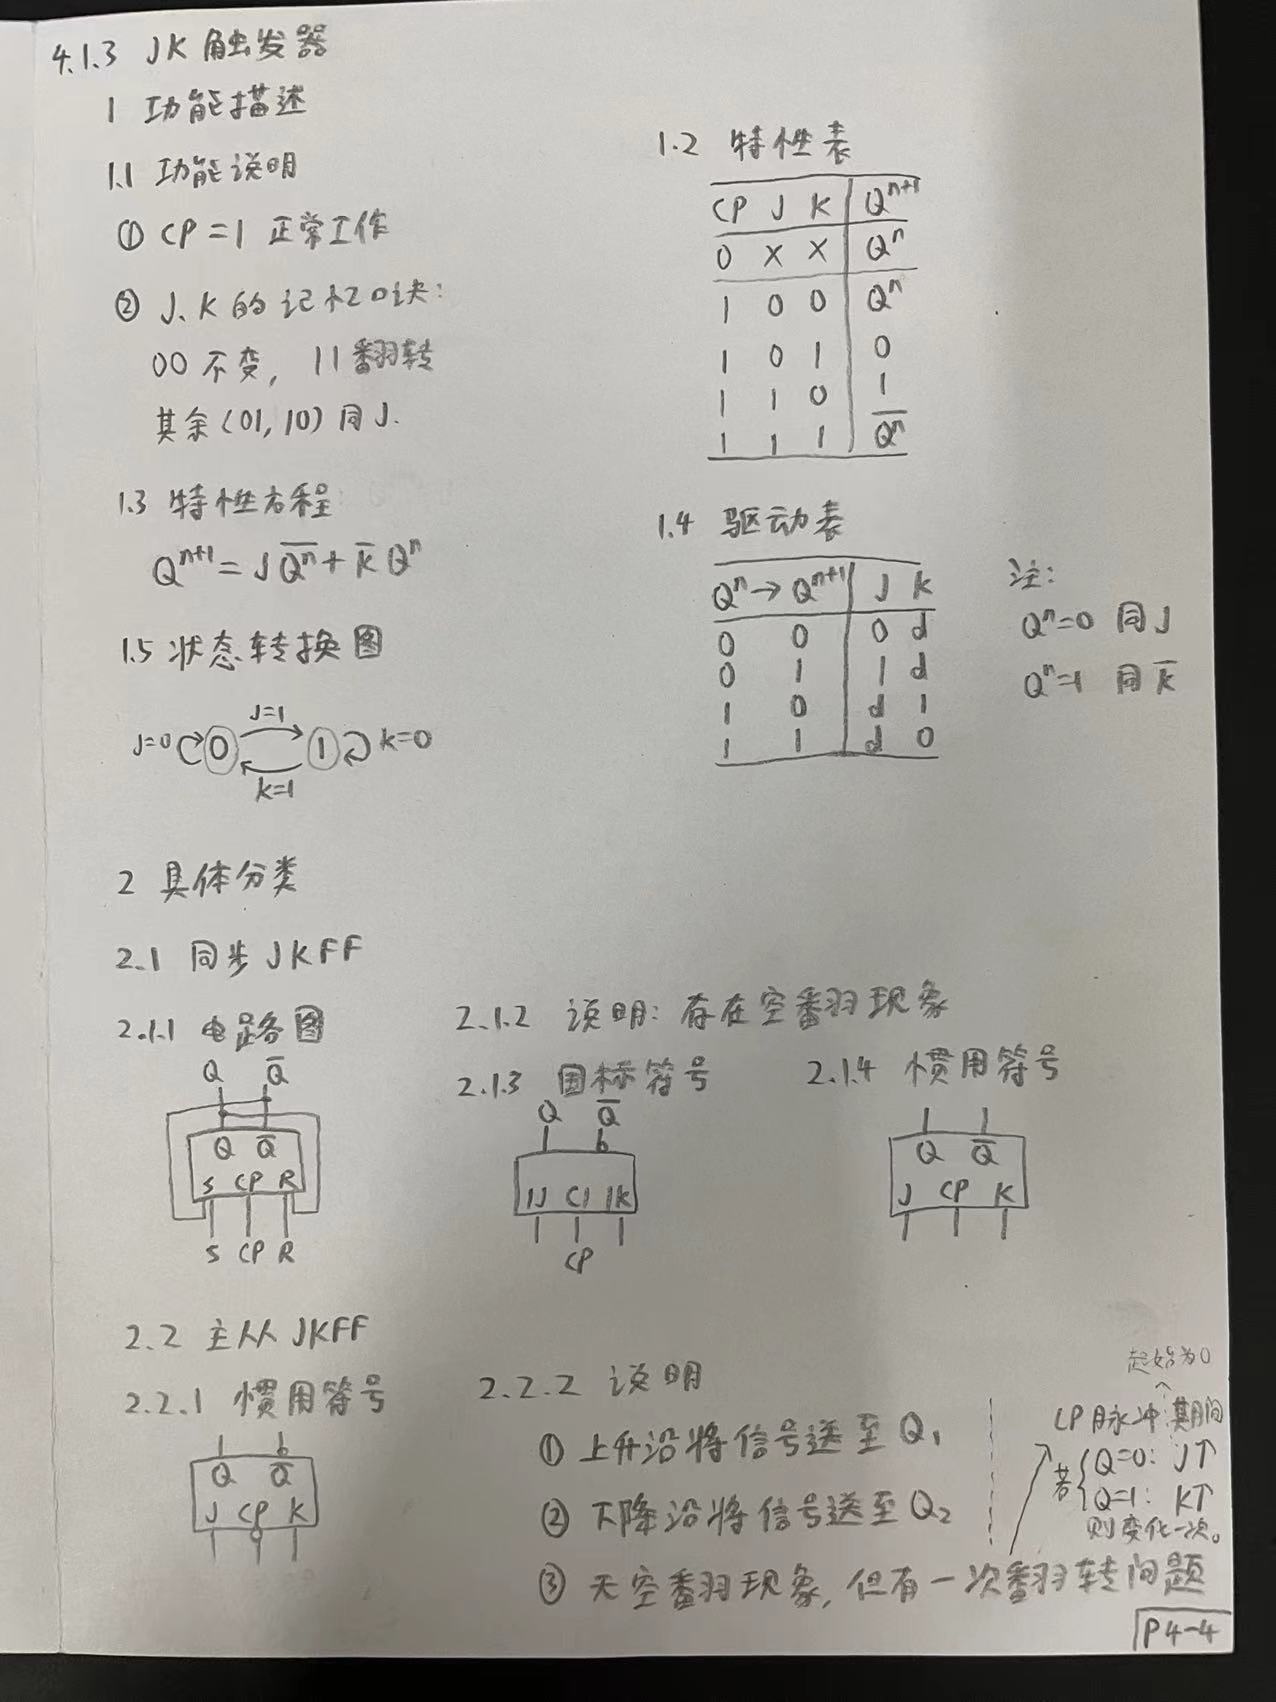 4.1.3 JK 触发器
1 功能描述
1.1 功能说明
① CP=1 正常工作
② J、K的记忆口诀:
00 不变, 11翻转
其余(01,10)同J.
1.2 特性表
CP J K Q^{n+1}
0 × × Q^n
1 0 0 Q^n
1 0 1 0
1 1 0 1
1 1 1 \overline{Q^n}
1.3 特性方程
Q^{n+1} = J\overline{Q^n} + \overline{K}Q^n
1.4 驱动表
Q^n → Q^{n+1} J K
0 0 0 d
0 1 1 d
1 0 d 1
1 1 d 0
注:
Q^n=0 同J
Q^n=1 同\overline{K}
1.5 状态转换图
J=1
J=0 0 1 K=0
K=1
2 具体分类
2.1 同步 JKFF
2.1.1 电路图
Q \overline{Q}
Q \overline{Q}
S CP R
S CP R
2.1.2 说明: 存在空翻现象
2.1.3 国标符号
Q \overline{Q}
1J C1 1K
CP
2.1.4 惯用符号
Q \overline{Q}
J CP K
2.2 主从 JKFF
2.2.1 惯用符号
Q \overline{Q}
J CP K
2.2.2 说明
① 上升沿将信号送至 Q₁
② 下降沿将信号送至Q₂
③ 无空翻现象, 但有一次翻转问题
起始为0
CP脉冲期间
若 Q=0: J↑
Q=1: K↑
则变化一次。
P4-4